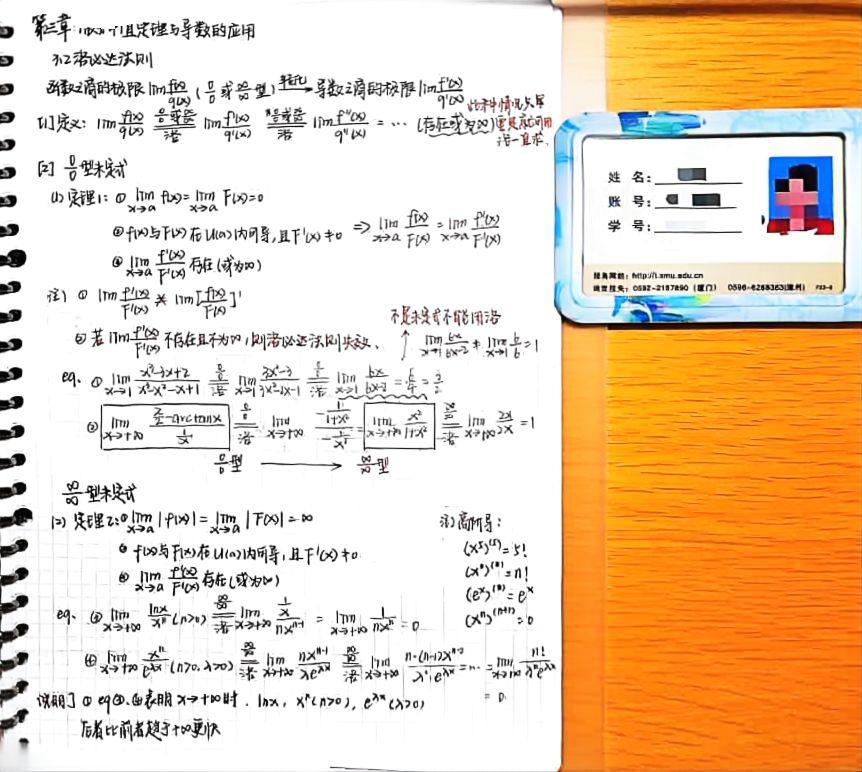 第三章 中值定理与导数的应用
3.2 洛必达法则
函数之商的极限 lim f(x)/g(x) (0/0 或 ∞/∞ 型) 转化→ 导数之商的极限 lim f'(x)/g'(x)
[1] 定义: lim f(x)/g(x) =(0/0或∞/∞, 洛)= lim f'(x)/g'(x) =(0/0或∞/∞, 洛)= lim f''(x)/g''(x) = … (存在或为∞)
此种情况只要
洛一直求.
[2] 0/0 型未定式
(1) 定理1: ① lim x→a f(x) = lim x→a F(x) = 0
② f(x)与F(x)在U(a)内可导, 且F'(x) ≠ 0 ⇒ lim x→a f(x)/F(x) = lim x→a f'(x)/F'(x)
③ lim x→a f'(x)/F'(x) 存在(或为∞)
注) ① lim f'(x)/F'(x) ≠ lim [f(x)/F(x)]'
② 若 lim f'(x)/F'(x) 不存在且不为∞, 则洛必达法则失效.
不是未定式不能用洛
↑ lim x→1 6x/(6x-2) ≠ lim x→1 6/6 = 1
eg. ① lim x→1 (x³-3x+2)/(x³-x²-x+1) =(0/0, 洛)= lim x→1 (3x²-3)/(3x²-2x-1) =(0/0, 洛)= lim x→1 6x/(6x-2) = 6/4 = 3/2
② lim x→+∞ (π/2 - arctanx)/(1/x) =(0/0, 洛)= lim x→+∞ (-1/(1+x²))/(-1/x²) = lim x→+∞ x²/(1+x²) =(∞/∞, 洛)= lim x→+∞ 2x/2x = 1
0/0 型 → ∞/∞ 型
∞/∞ 型未定式
(2) 定理2: ① lim x→a |f(x)| = lim x→a |F(x)| = ∞
② f(x)与F(x)在U(a)内可导, 且F'(x) ≠ 0
③ lim x→a f'(x)/F'(x) 存在(或为∞)
注) 高阶导:
(x⁵)⁽⁵⁾ = 5!
(xⁿ)⁽ⁿ⁾ = n!
(eˣ)⁽ⁿ⁾ = eˣ
(xⁿ)⁽ⁿ⁺¹⁾ = 0
eg. ③ lim x→+∞ lnx/xⁿ (n>0) =(∞/∞, 洛)= lim x→+∞ (1/x)/(nxⁿ⁻¹) = lim x→+∞ 1/(nxⁿ) = 0
④ lim x→+∞ xⁿ/e^(λx) (n>0, λ>0) =(∞/∞, 洛)= lim x→+∞ nxⁿ⁻¹/(λe^(λx)) =(∞/∞, 洛)= lim x→+∞ n·(n-1)xⁿ⁻²/(λ²·e^(λx)) = … = lim x→+∞ n!/(λⁿe^(λx))
= 0
说明] ① eg③、④表明 x→+∞时, lnx, xⁿ(n>0), e^(λx)(λ>0)
后者比前者趋于+∞更快
姓 名:
账 号:
学 号:
服务网址: http://i.xmu.edu.cn
询言挂失: 0592-2187890 (厦门) 0596-6288383(漳州)